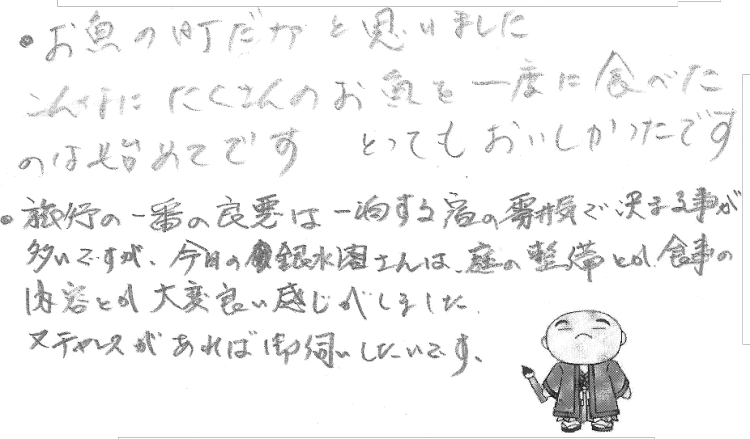 ・お魚の町だなと思いました
こんなにたくさんのお魚を一度に食べた
のは始めてです とってもおいしかったです
・旅行の一番の良悪は一泊する宿の雰囲気で決まる事が
多いですが、今日の銀水園さんは、庭の整備とか食事の
内容とか大変良い感じがしました。
又チャンスがあれば御伺いしたいです、